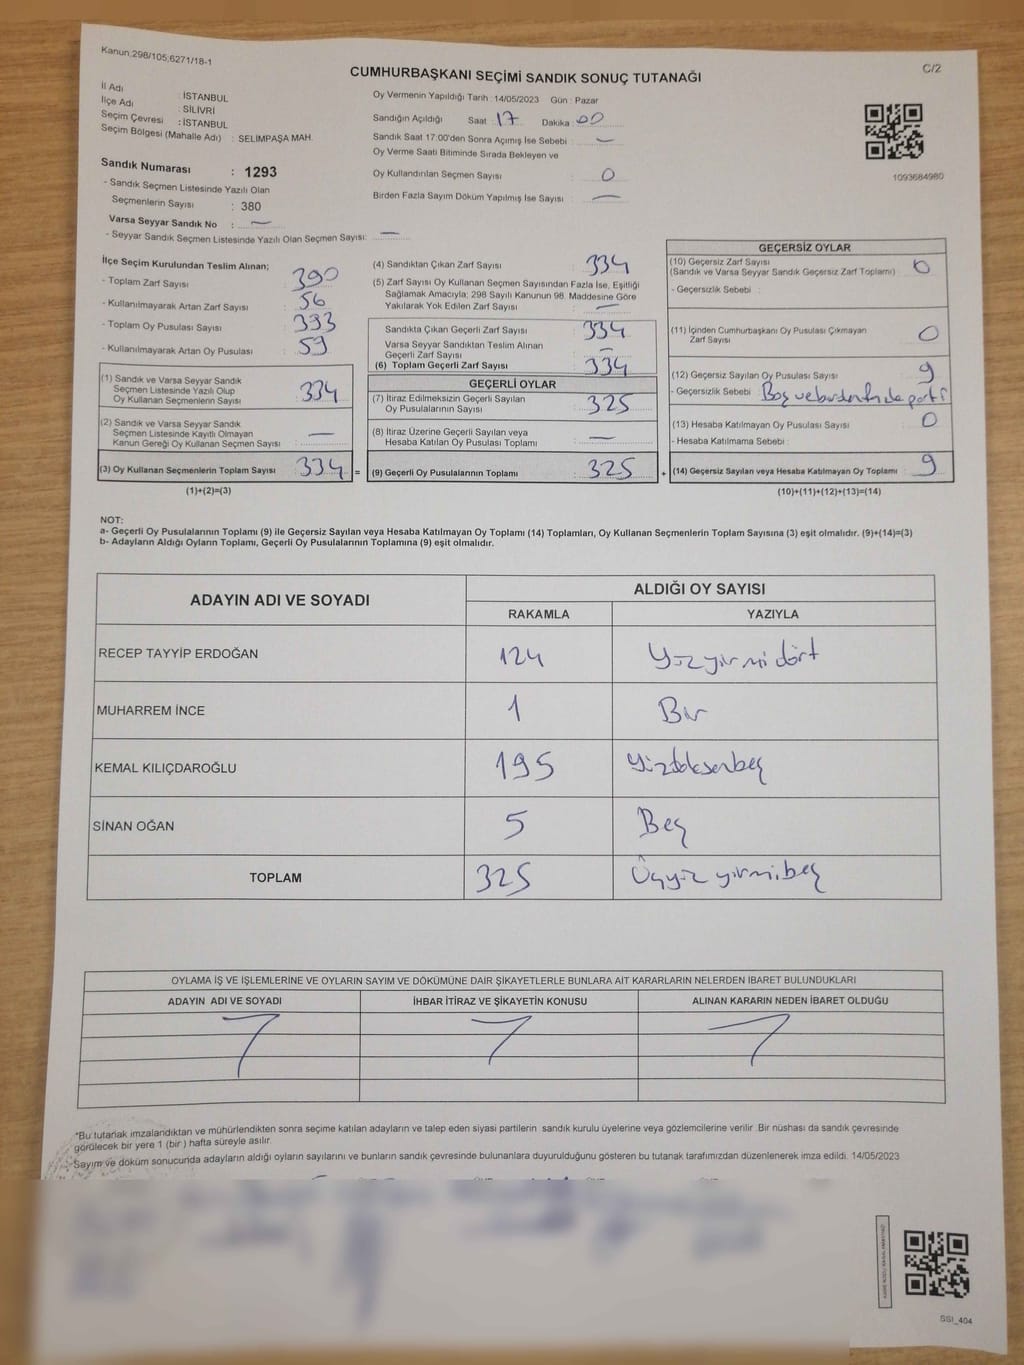 Kanun:298/105;6271/18-1
C/2
CUMHURBAŞKANI SEÇİMİ SANDIK SONUÇ TUTANAĞI
İl Adı : İSTANBUL
İlçe Adı : SİLİVRİ
Seçim Çevresi : İSTANBUL
Seçim Bölgesi (Mahalle Adı) : SELİMPAŞA MAH.
Sandık Numarası : 1293
- Sandık Seçmen Listesinde Yazılı Olan
Seçmenlerin Sayısı : 380
Varsa Seyyar Sandık No : —
- Seyyar Sandık Seçmen Listesinde Yazılı Olan Seçmen Sayısı: —
Oy Vermenin Yapıldığı Tarih : 14/05/2023 Gün : Pazar
Sandığın Açıldığı Saat : 17 Dakika : 00
Sandık Saat 17:00'den Sonra Açımış İse Sebebi : —
Oy Verme Saati Bitiminde Sırada Bekleyen ve
Oy Kullandırılan Seçmen Sayısı : 0
Birden Fazla Sayım Döküm Yapılmış İse Sayısı : —
1093684980
İlçe Seçim Kurulundan Teslim Alınan;
- Toplam Zarf Sayısı : 390
- Kullanılmayarak Artan Zarf Sayısı : 56
- Toplam Oy Pusulası Sayısı : 393
- Kullanılmayarak Artan Oy Pusulası : 59
(1) Sandık ve Varsa Seyyar Sandık
Seçmen Listesinde Yazılı Olup
Oy Kullanan Seçmenlerin Sayısı : 334
(2) Sandık ve Varsa Seyyar Sandık
Seçmen Listesinde Kayıtlı Olmayan
Kanun Gereği Oy Kullanan Seçmen Sayısı : —
(3) Oy Kullanan Seçmenlerin Toplam Sayısı : 334 =
(1)+(2)=(3)
(4) Sandıktan Çıkan Zarf Sayısı : 334
(5) Zarf Sayısı Oy Kullanan Seçmen Sayısından Fazla İse, Eşitliği
Sağlamak Amacıyla; 298 Sayılı Kanunun 98. Maddesine Göre
Yakılarak Yok Edilen Zarf Sayısı : —
Sandıkta Çıkan Geçerli Zarf Sayısı : 334
Varsa Seyyar Sandıktan Teslim Alınan
Geçerli Zarf Sayısı : —
(6) Toplam Geçerli Zarf Sayısı : 334
GEÇERLİ OYLAR
(7) İtiraz Edilmeksizin Geçerli Sayılan
Oy Pusulalarının Sayısı : 325
(8) İtiraz Üzerine Geçerli Sayılan veya
Hesaba Katılan Oy Pusulası Toplamı : —
(9) Geçerli Oy Pusulalarının Toplamı : 325 +
GEÇERSİZ OYLAR
(10) Geçersiz Zarf Sayısı : 0
(Sandık ve Varsa Seyyar Sandık Geçersiz Zarf Toplamı)
- Geçersizlik Sebebi :
(11) İçinden Cumhurbaşkanı Oy Pusulası Çıkmayan
Zarf Sayısı : 0
(12) Geçersiz Sayılan Oy Pusulası Sayısı : 9
- Geçersizlik Sebebi : Boş ve birden fazla parti
(13) Hesaba Katılmayan Oy Pusulası Sayısı : 0
- Hesaba Katılmama Sebebi :
(14) Geçersiz Sayılan veya Hesaba Katılmayan Oy Toplamı : 9
(10)+(11)+(12)+(13)=(14)
NOT:
a- Geçerli Oy Pusulalarının Toplamı (9) ile Geçersiz Sayılan veya Hesaba Katılmayan Oy Toplamı (14) Toplamları, Oy Kullanan Seçmenlerin Toplam Sayısına (3) eşit olmalıdır. (9)+(14)=(3)
b- Adayların Aldığı Oyların Toplamı, Geçerli Oy Pusulalarının Toplamına (9) eşit olmalıdır.
ADAYIN ADI VE SOYADI ALDIĞI OY SAYISI
RAKAMLA YAZIYLA
RECEP TAYYİP ERDOĞAN 124 Yüzyirmidört
MUHARREM İNCE 1 Bir
KEMAL KILIÇDAROĞLU 195 Yüzdoksanbeş
SİNAN OĞAN 5 Beş
TOPLAM 325 Üçyüzyirmibeş
OYLAMA İŞ VE İŞLEMLERİNE VE OYLARIN SAYIM VE DÖKÜMÜNE DAİR ŞİKAYETLERLE BUNLARA AİT KARARLARIN NELERDEN İBARET BULUNDUKLARI
ADAYIN ADI VE SOYADI İHBAR İTİRAZ VE ŞİKAYETİN KONUSU ALINAN KARARIN NEDEN İBARET OLDUĞU
*Bu tutanak imzalandıktan ve mühürlendikten sonra seçime katılan adayların ve talep eden siyasi partilerin sandık kurulu üyelerine veya gözlemcilerine verilir .Bir nüshası da sandık çevresinde
görülecek bir yere 1 (bir ) hafta süreyle asılır.
-Sayım ve döküm sonucunda adayların aldığı oyların sayılarını ve bunların sandık çevresinde bulunanlara duyurulduğunu gösteren bu tutanak tarafımızdan düzenlenerek imza edildi. 14/05/2023
SSI_404